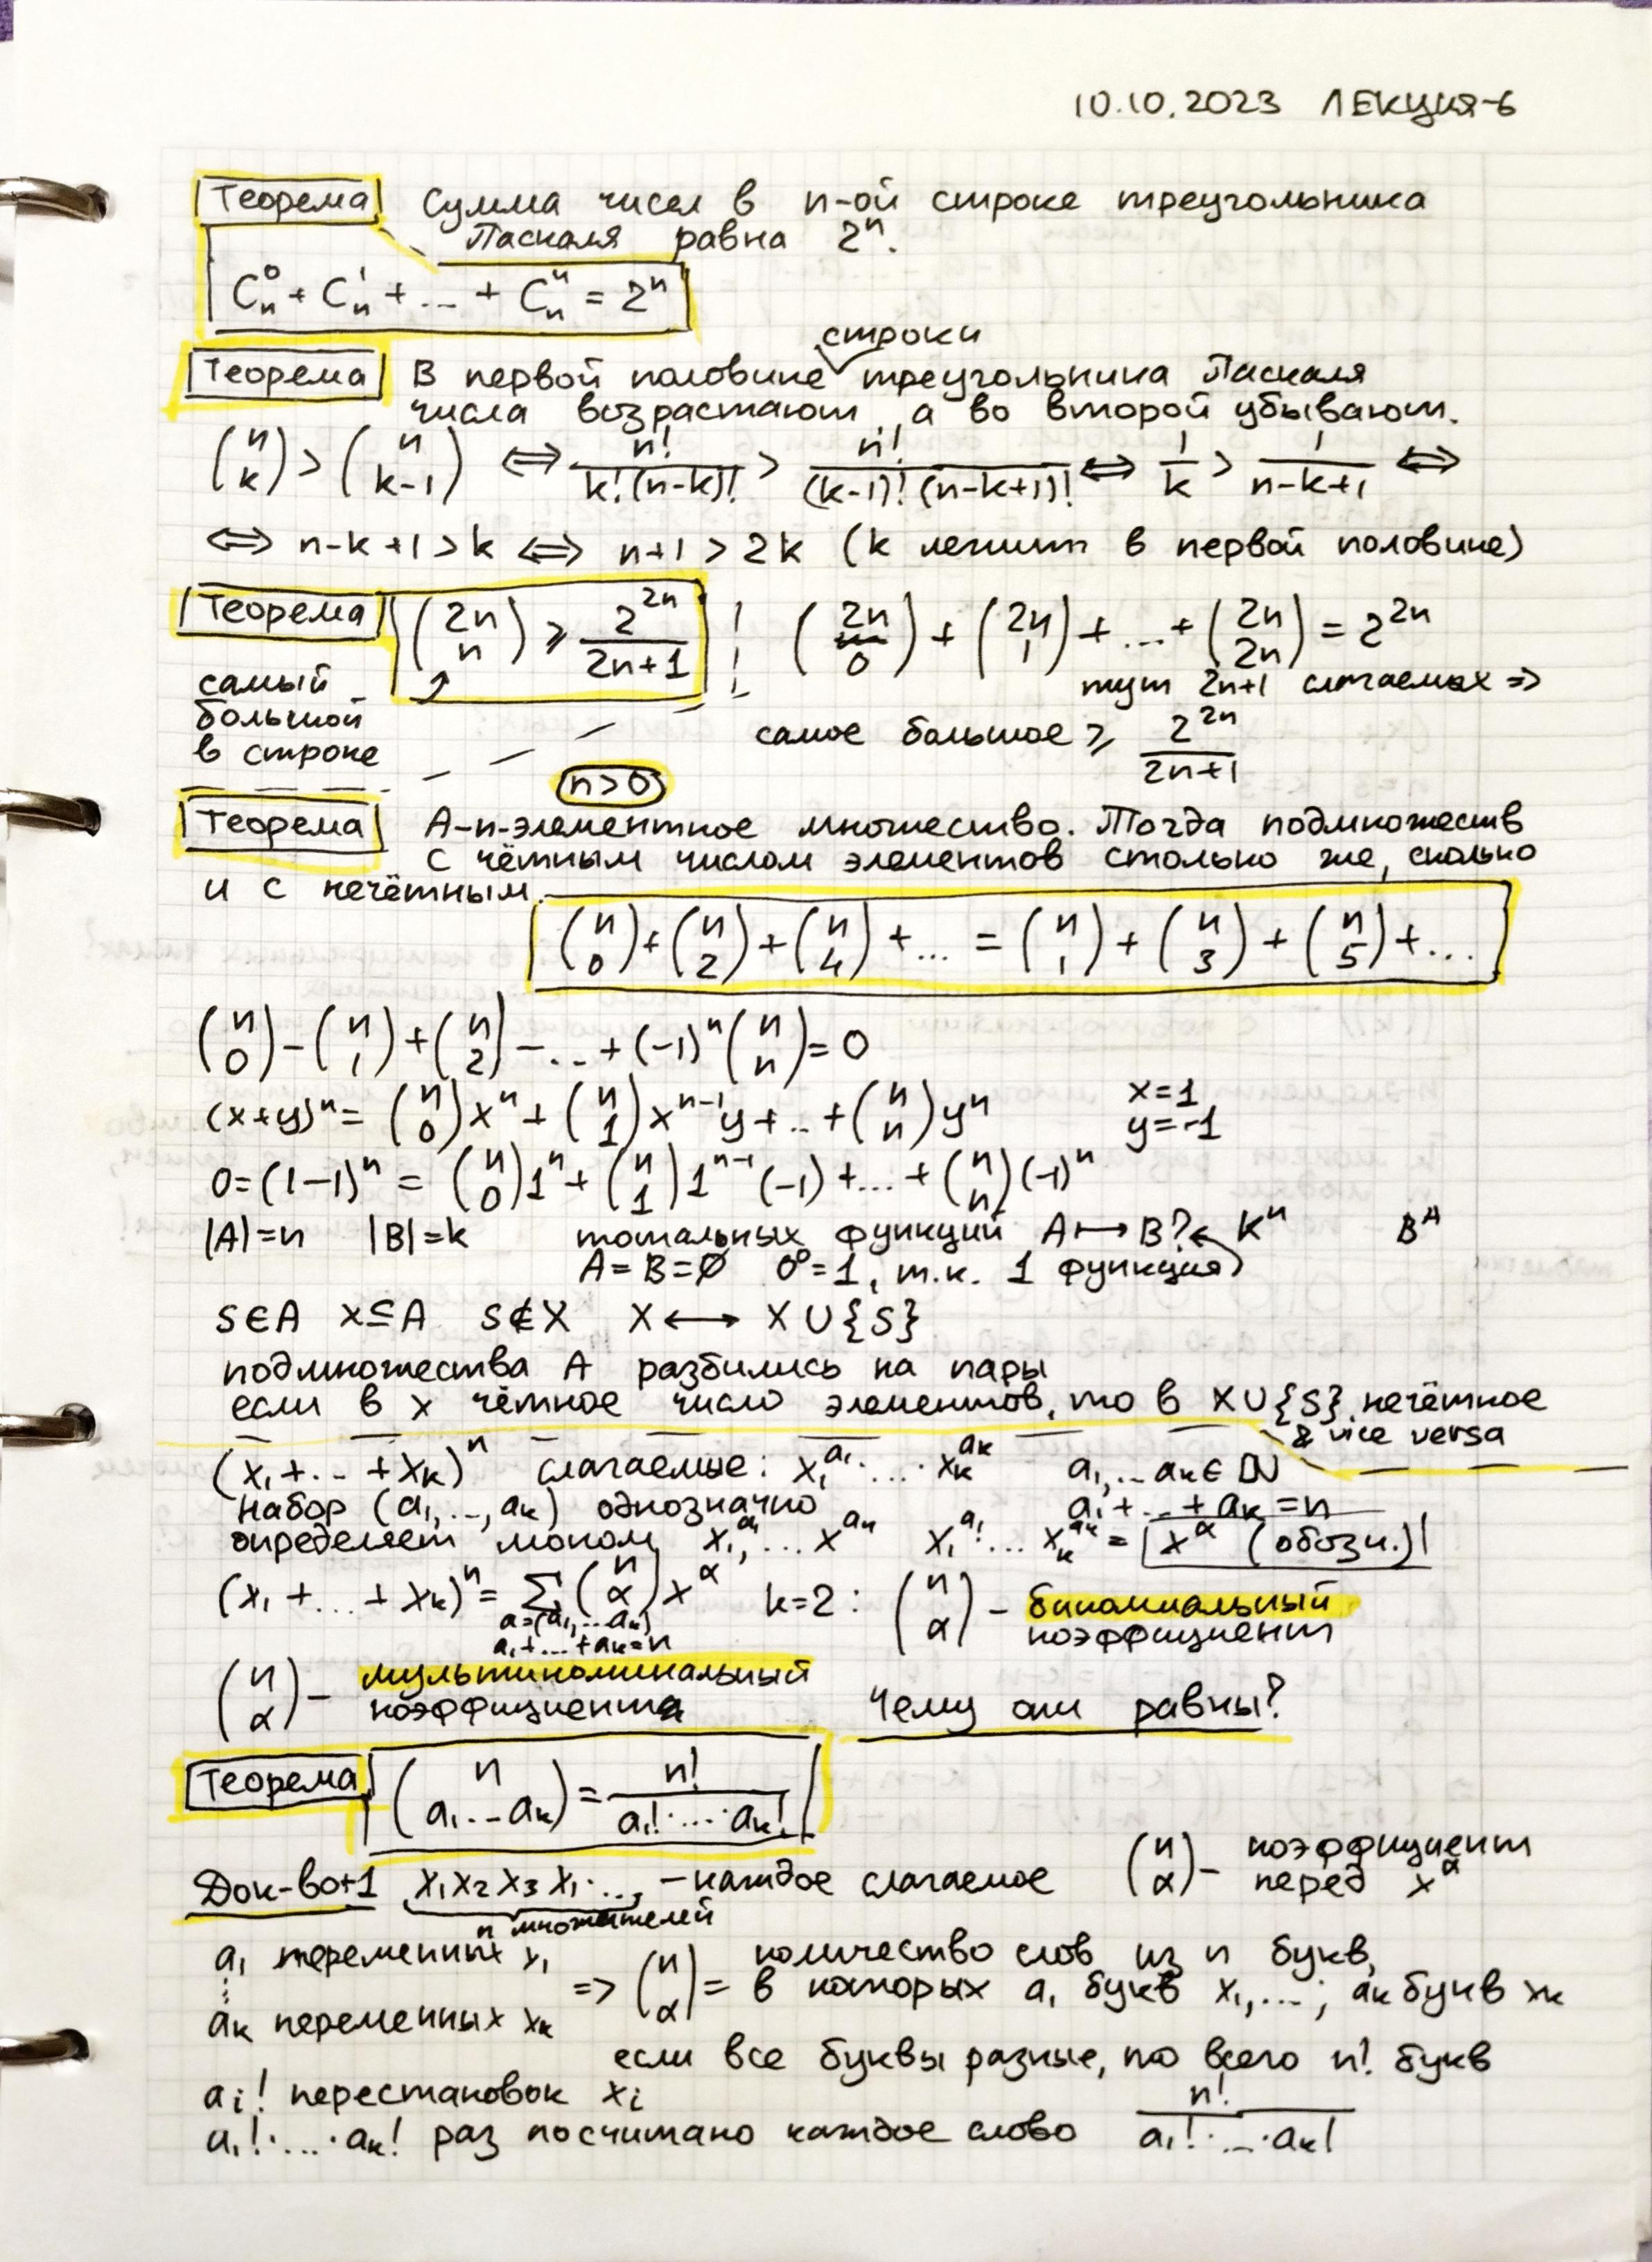 10.10.2023 ЛЕКЦИЯ-6
Теорема Сумма чисел в n-ой строке треугольника
Паскаля равна 2ⁿ.
C_n^0 + C_n^1 + ... + C_n^n = 2^n
строки
Теорема В первой половине треугольника Паскаля
числа возрастают, а во второй убывают.
(n k) > (n k-1) ⟺ n!/(k!(n-k)!) > n!/((k-1)!(n-k+1)!) ⟺ 1/k > 1/(n-k+1) ⟺
⟺ n-k+1>k ⟺ n+1>2k (k лежит в первой половине)
Теорема (2n n) ⩾ 2^{2n}/(2n+1) (2n 0) + (2n 1) + ... + (2n 2n) = 2^{2n}
тут 2n+1 слагаемых =>
самый
большой
в строке
самое большое ⩾ 2^{2n}/(2n+1)
n>0
Теорема A-n-элементное множество. Тогда подмножеств
с чётным числом элементов столько же, сколько
и с нечётным.
(n 0) + (n 2) + (n 4) + ... = (n 1) + (n 3) + (n 5) + ...
(n 0) - (n 1) + (n 2) - ... + (-1)^n (n n) = 0
(x+y)^n = (n 0)x^n + (n 1)x^{n-1}y + .. + (n n)y^n x=1
y=-1
0=(1-1)^n = (n 0)1^n + (n 1)1^{n-1}(-1) + ... + (n n)(-1)^n
|A|=n |B|=k тотальных функций A ⟼ B? ← k^n B^A
A=B=∅ 0^0=1, т.к. 1 функция
S∈A X⊆A S∉X X ⟷ X∪{S}
подмножества A разбились на пары
если в x чётное число элементов, то в X∪{S} нечётное
& vice versa
(x_1+...+x_k)^n слагаемые: x_1^{a_1}·...·x_k^{a_k} a_1,...a_k∈ℕ
набор (a_1,...,a_k) однозначно a_1+...+a_k=n
определяет моном x_1^{a_1},...x^{a_k} x_1^{a_1}...x_k^{a_k} = x^α (обозн.)
(x_1+...+x_k)^n = ∑ (n α) x^α k=2: (n α) - биномиальный
коэффициент
a=(a_1,...a_k)
a_1+...+a_k=n
(n α) - мультиноминальный
коэффициента Чему они равны?
Теорема (n a_1...a_k) = n!/(a_1!·...·a_k!)
Док-во+1 x_1x_2x_3x_1·... - каждое слагаемое (n α) - коэффициент
перед x^α
n множителей
a_1 переменных x_1
⋮
a_k переменных x_k
=> (n α) = количество слов из n букв,
в которых a_1 букв x_1,...; a_k букв x_k
если все буквы разные, то всего n! букв
a_i! перестановок x_i
a_1!·...·a_k! раз посчитано каждое слово n!/(a_1!·...·a_k!)